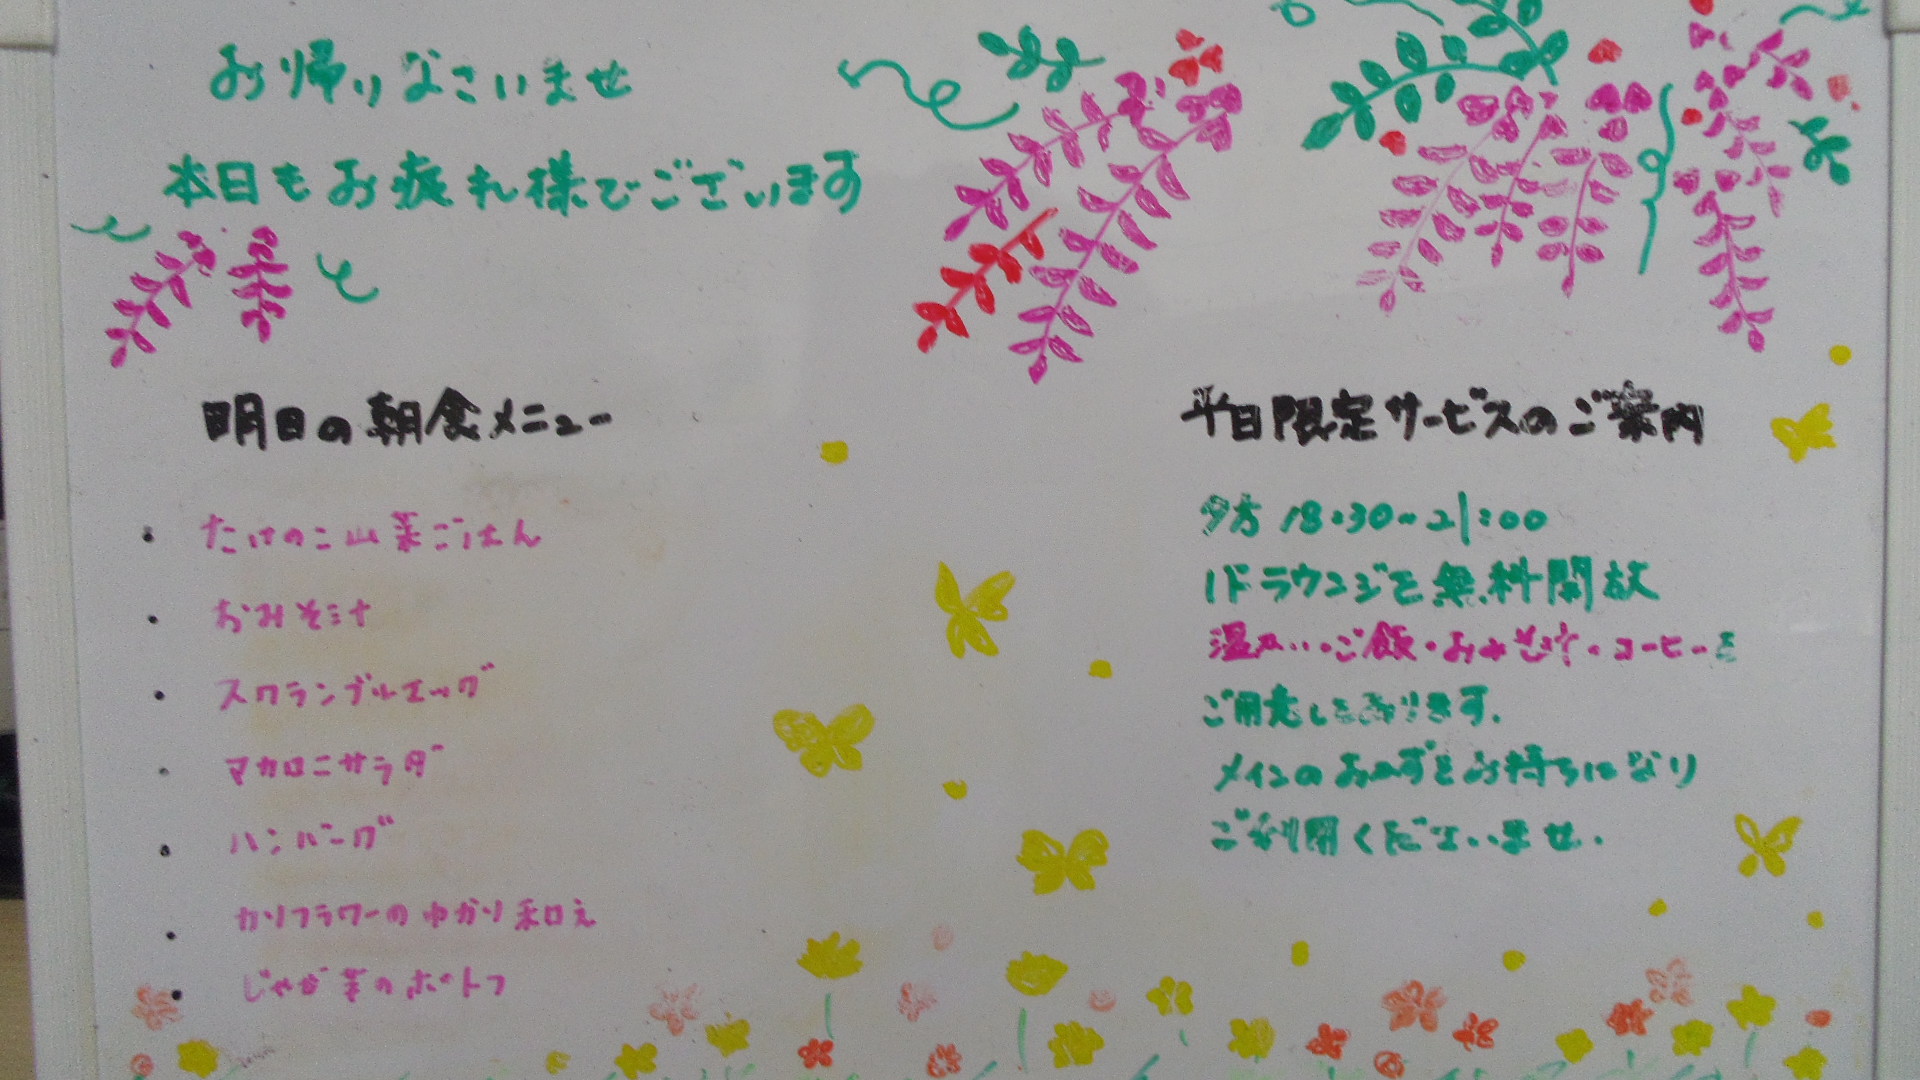 お帰りなさいませ
本日もお疲れ様でございます
明日の朝食メニュー
・たけのこ山菜ごはん
・おみそ汁
・スクランブルエッグ
・マカロニサラダ
・ハンバーグ
・カリフラワーのゆかり和え
・じゃが芋のポートフ
平日限定サービスのご案内
夕方 18:30~21:00
1Fラウンジを無料開放
温かい・ご飯・おみそ汁・コーヒーを
ご用意しております.
メインのおかずをお持ちになり
ご利用くださいませ.